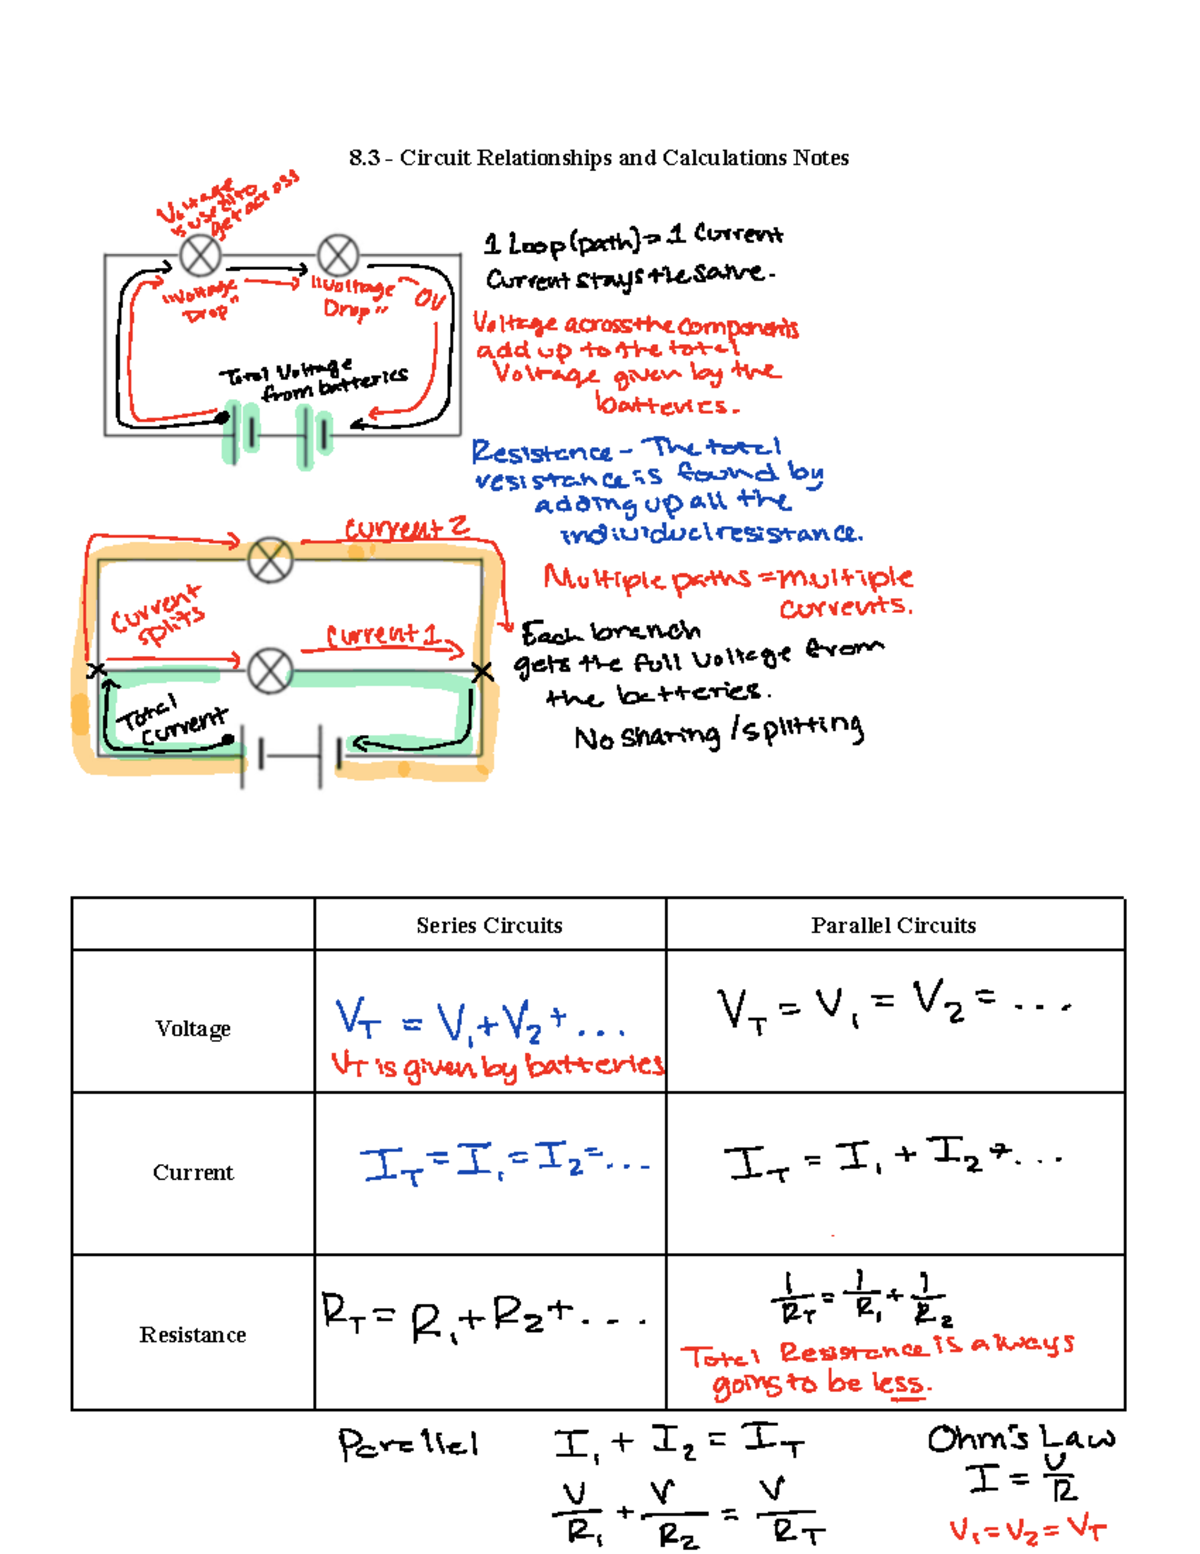 8.3 - Circuit Relationships and Calculations Notes
Voltage
is used to
get across
"Voltage
Drop"
"Voltage
Drop"
0V
Total Voltage
from batteries
1 Loop (path) = 1 Current
Current stays the same.
Voltage across the components
add up to the total
Voltage given by the
batteries.
Resistance - The total
resistance is found by
adding up all the
individual resistance.
Current 2
Current
splits
Current 1
Total
Current
Multiple paths = multiple
currents.
Each branch
gets the full voltage from
the batteries.
No sharing / splitting
Series Circuits
Parallel Circuits
Voltage
V_T = V_1 + V_2 + ...
V_T is given by batteries
V_T = V_1 = V_2 = ...
Current
I_T = I_1 = I_2 = ...
I_T = I_1 + I_2 + ...
Resistance
R_T = R_1 + R_2 + ...
1/R_T = 1/R_1 + 1/R_2
Total Resistance is always
going to be less.
Parallel
I_1 + I_2 = I_T
V/R_1 + V/R_2 = V/R_T
Ohm's Law
I = V/R
V_1 = V_2 = V_T